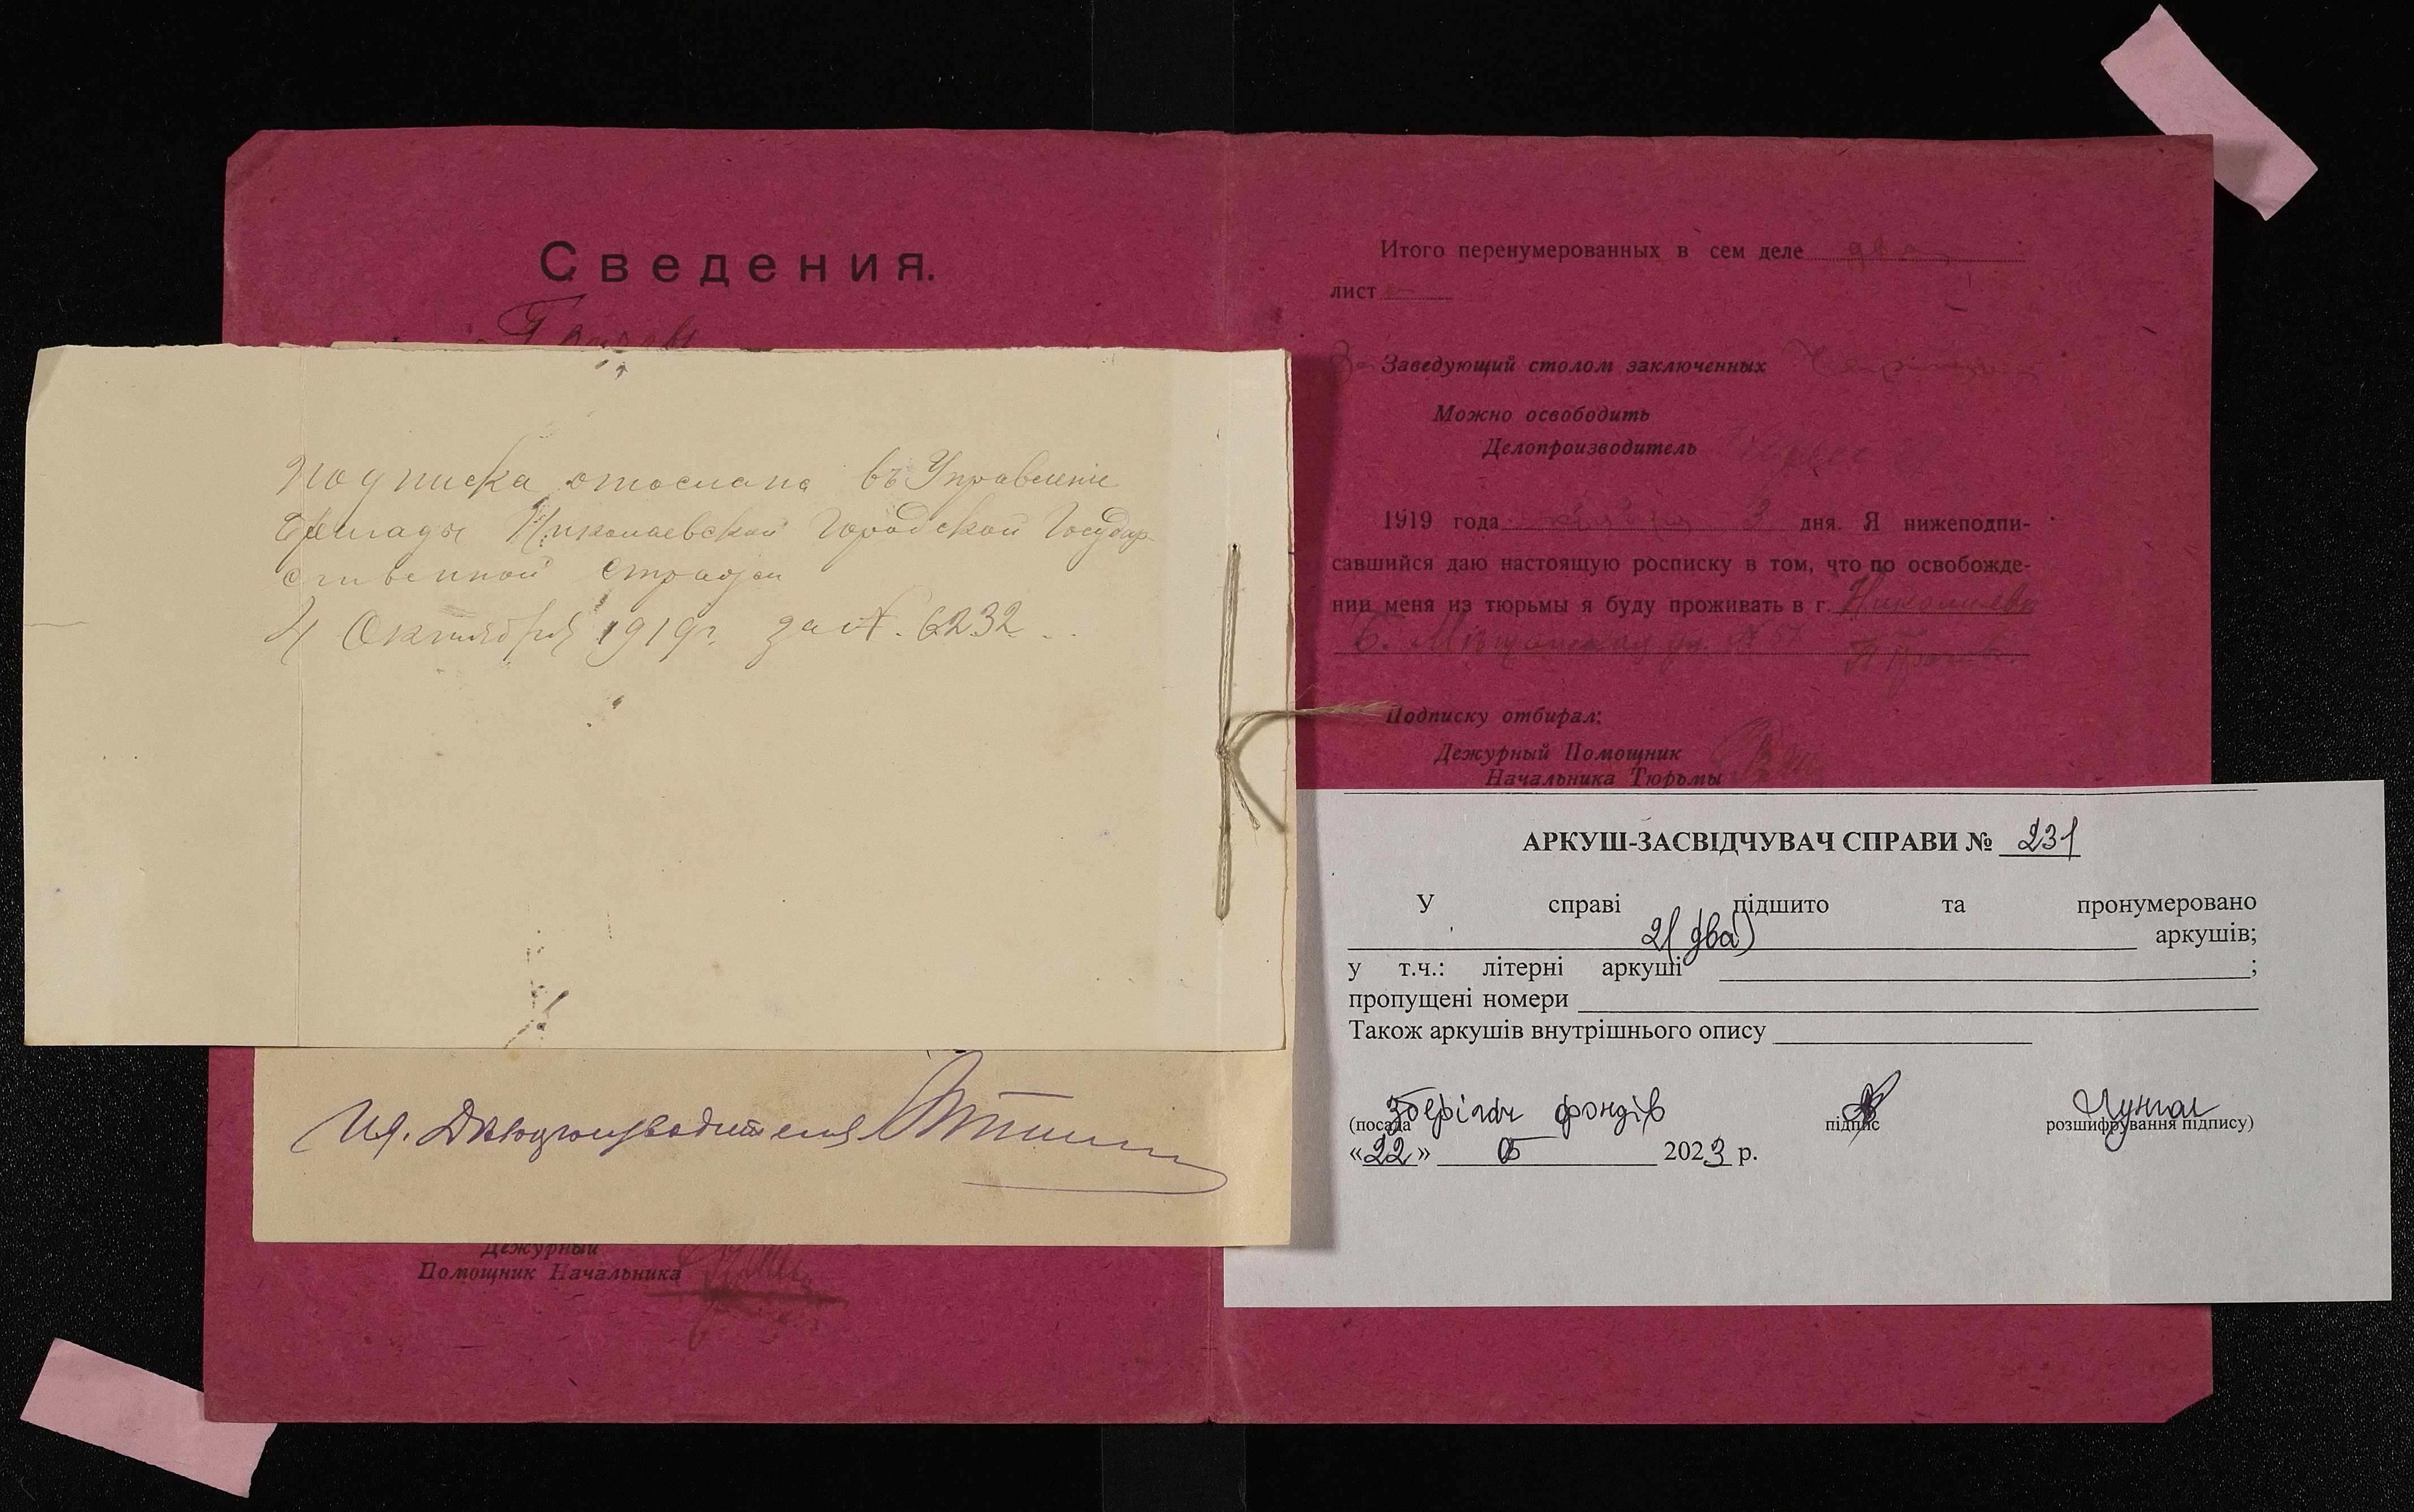 Сведения.
Подписка отослана въ Управленіе
Бригады Николаевской Городской Государ-
ственной Стражи
4 Октября 1919 г. за №. 6232
И.д. Делопроизводителя
Дежурный
Помощник Начальника
Итого перенумерованных в сем деле два
лист
За Заведующий столом заключенных
Можно освободить
Делопроизводитель
1919 года октября 3 дня. Я нижеподпи-
савшийся даю настоящую росписку в том, что по освобожде-
нии меня из тюрьмы я буду проживать в г. Николаеве
Б. Мѣщанская ул. № 57
Подписку отбирал:
Дежурный Помощник
Начальника Тюрьмы
АРКУШ-ЗАСВІДЧУВАЧ СПРАВИ № 231
У справі підшито та пронумеровано
2(два) аркушів;
у т.ч.: літерні аркуші ;
пропущені номери
Також аркушів внутрішнього опису
Зберігач фондів
(посада підпис розшифрування підпису)
«22» 05 2023 р.